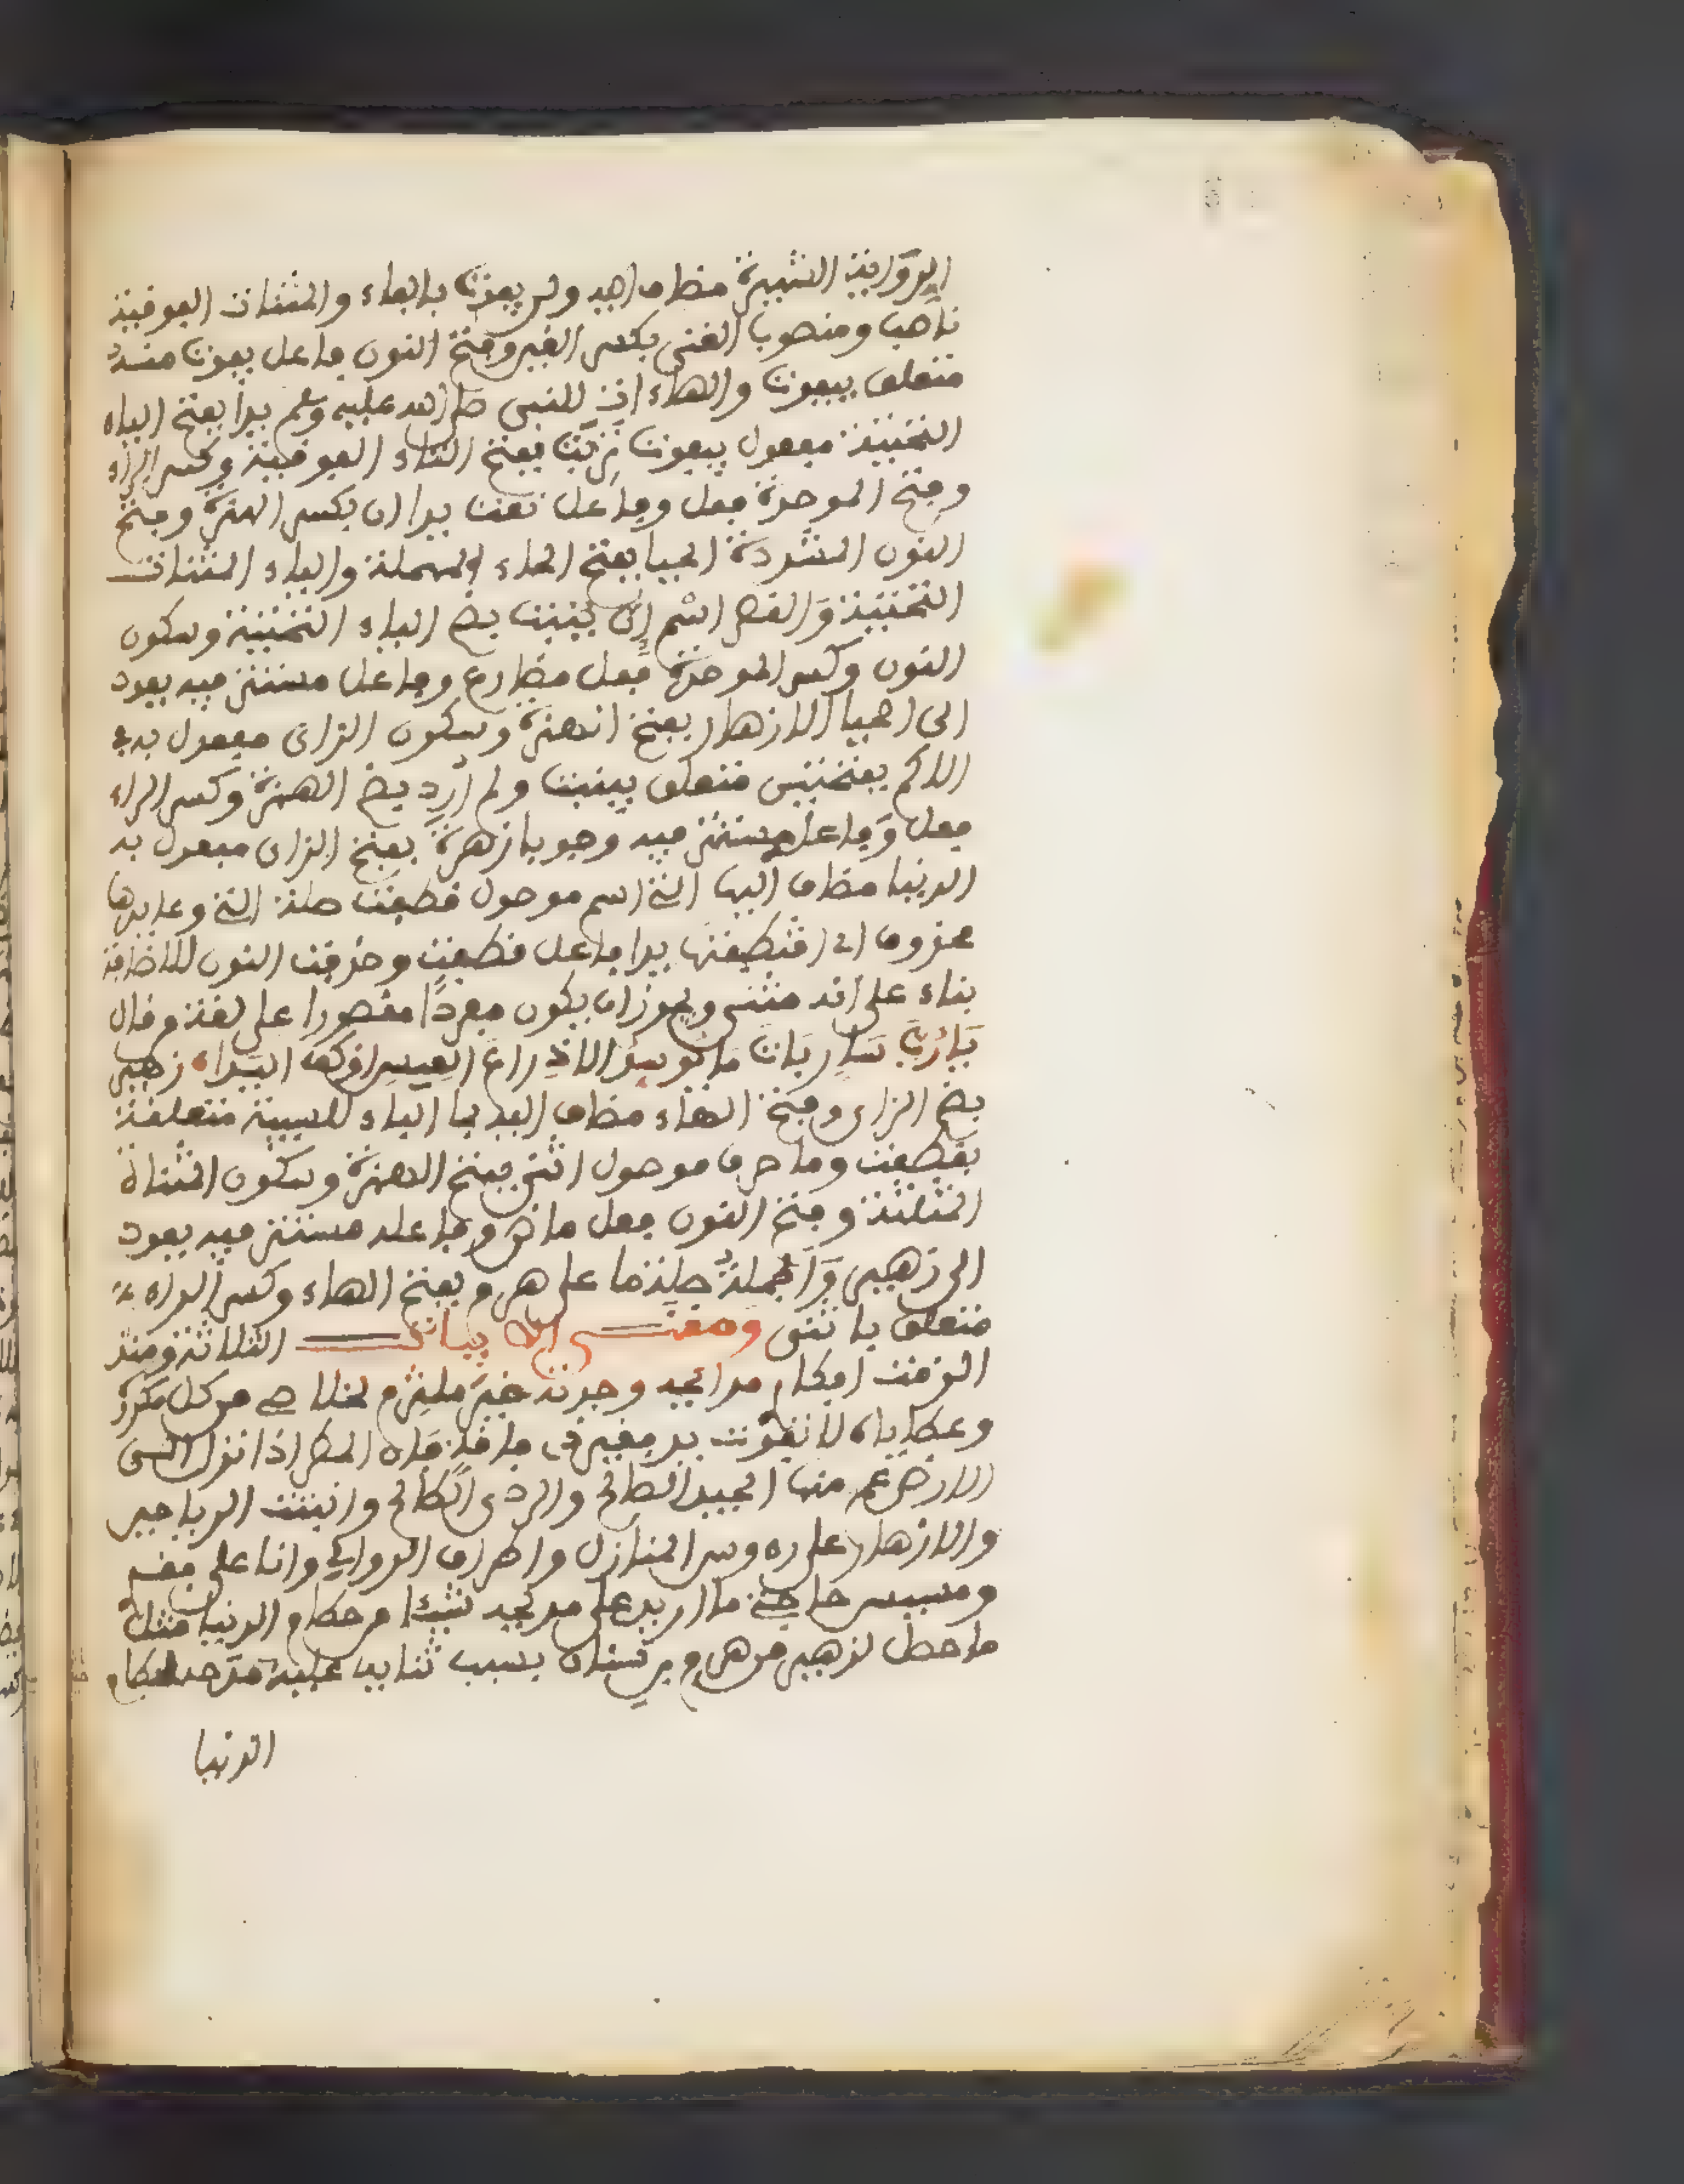 الروايـة الشهيرة مضاف اليه ولن يفوت بالفاء والمثنات الفوفية
ناصب ومنصوب الغنى بكسر الغين وفتح النون فاعل يفوت منه
متعلق بيفوت والهاء اية للنبي صلى الله عليه وسلم يدا بفتح الياء
التحتية مفعول يفوت تربت بفتح التاء الفوفية وكسر الراء
وفتح الموحدة فعل وفاعل نعت يدا ان بكسر الهمزة وفتح
النون المشددة الحيا بفتح الحاء المهملة والياء المثنات
التحتية والقصر اسم إن ينبت بضم الياء التحتية وسكون
النون وكسر الموحدة فعل مضارع وفاعل مستتر فيه يعود
الى الحيا الازهار بفتح الهمزة وسكون الزاى مفعول به
الاكم بفتحتين متعلق بينبت ولم أرد بضم الهمزة وكسر الراء
فعل وفاعل مستتر فيه وجوبا زهرة بفتح الزاى مفعول به
الدنيا مضاف اليها التي اسم موصول قطفت صلة التي وعايدها
محذوف اي اقتطفتها يدا فاعل قطفت وحذفت النون للاضافة
بناء على انه مثنى ويجوز ان يكون مفردا مقصورا على لغة من قال
يا رب سار بات ما توسدا الا ذراع العيس او كف اليدا زهير
بضم الزاى وفتح الهاء مضاف اليه بما الباء للسببية متعلقة
بقطفت وما حرف موصول اثنى بفتح الهمزة وسكون المثناة
المثلثة وفتح النون فعل ماض وفاعله مستتر فيه يعود
الى زهير والجملة صلة ما على هرم بفتح الهاء وكسر الراء
متعلق باثنى ومعنـــى الابيات الثلاثة ومنذ
الزمت افكارى مدايحه وجدته خير ملتزم لخلاصى من كل مكروه
وعطاياه لا تفوت يد فقير في فاقة فان المطر اذا نزل الى
الارض عم منها الجيد الصالح والردى الطالح وانبتت الرياحين
والازهار على رءوس المنازل واطراف الروابي وانا على فقرى
ومسيس حاجتي ما اريد على مدحه شيئا من حطام الدنيا مثل
ما حصل لزهير من هرم بن سنان بسبب ثنايه عليه مدحه لحطام
الدنيا